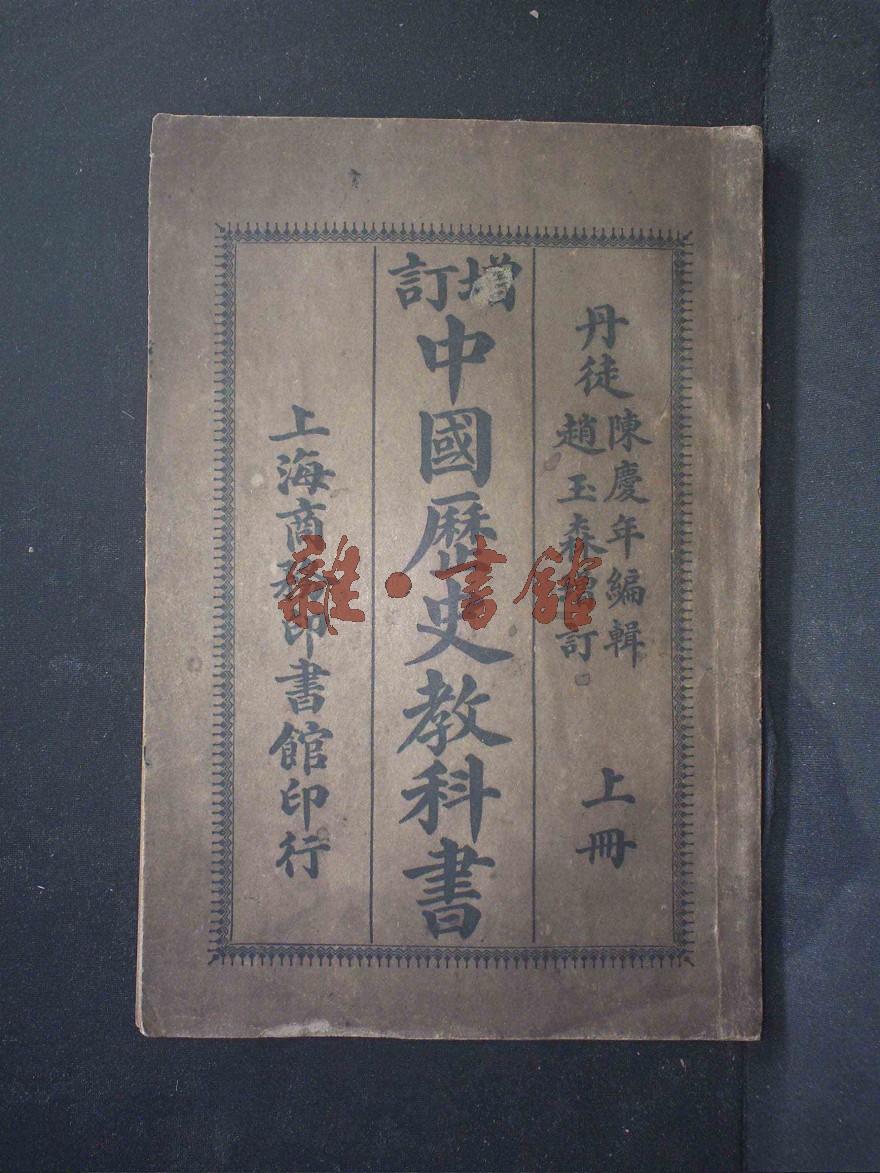 丹徒
陳慶年編輯
趙玉森增訂
上冊
增訂
中國歷史教科書
上海商務印書館印行
雜·書館